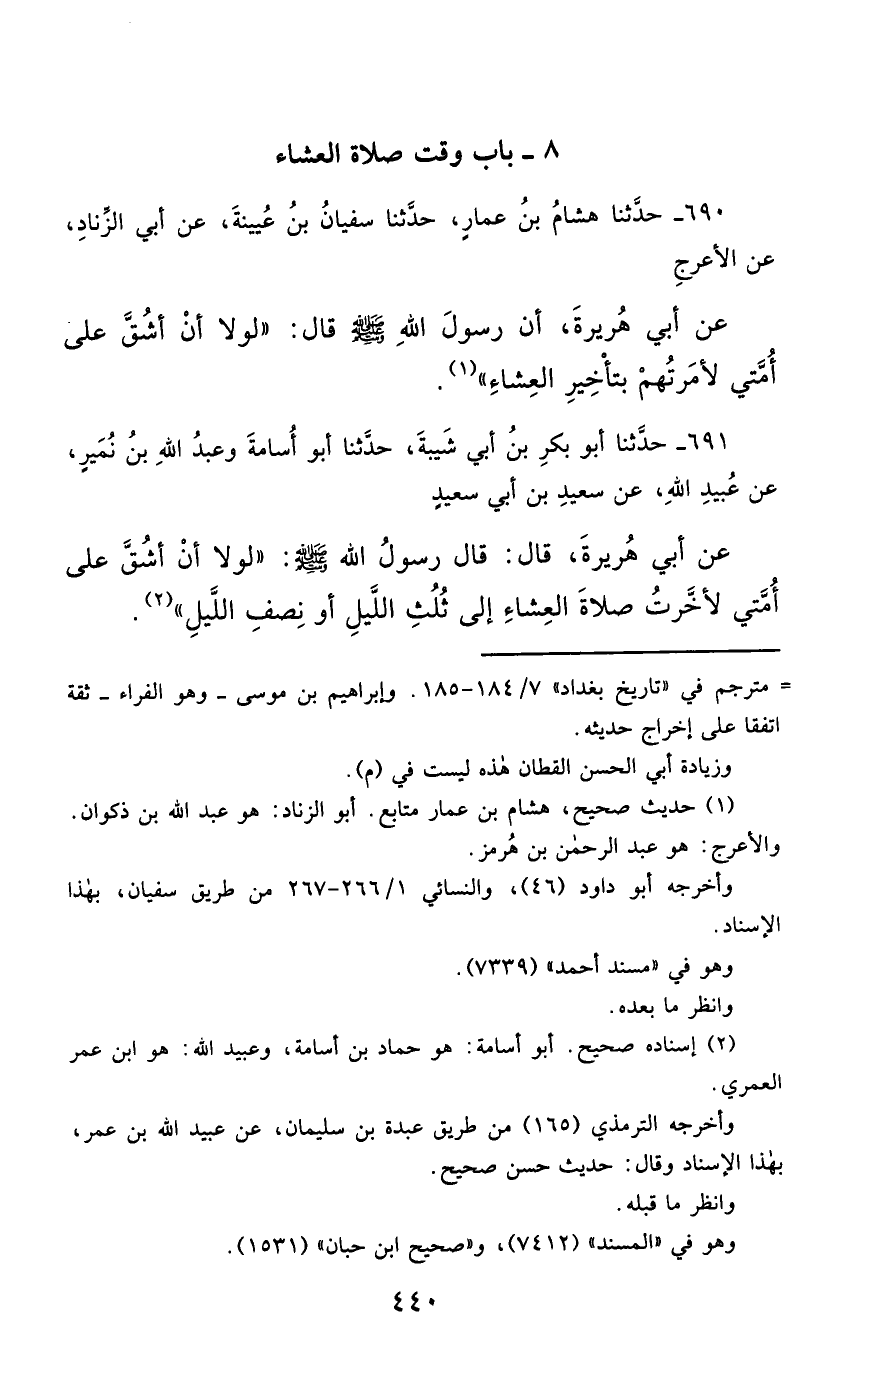 ٨ ـ باب وقت صلاة العشاء
٦٩٠ـ حدَّثنا هشامُ بنُ عمارٍ، حدَّثنا سفيانُ بنُ عُيينةَ، عن أبي الزِّنادِ،
عن الأعرجِ
عن أبي هُريرةَ، أن رسولَ اللهِ ﷺ قال: «لولا أنْ أشُقَّ على
أُمَّتي لأمَرتُهمْ بتأْخِيرِ العِشاءِ»(١).
٦٩١ـ حدَّثنا أبو بكرِ بنُ أبي شَيبةَ، حدَّثنا أبو أُسامةَ وعبدُ اللهِ بنُ نُمَيرٍ،
عن عُبيدِ اللهِ، عن سعيدِ بن أبي سعيدٍ
عن أبي هُريرةَ، قال: قال رسولُ الله ﷺ: «لولا أنْ أشُقَّ على
أُمَّتي لأخَّرتُ صلاةَ العِشاءِ إلى ثُلُثِ اللَّيلِ أو نِصفِ اللَّيلِ»(٢).
= مترجم في «تاريخ بغداد» ٧/ ١٨٤-١٨٥. وإبراهيم بن موسى ـ وهو الفراء ـ ثقة
اتفقا على إخراج حديثه.
وزيادة أبي الحسن القطان هٰذه ليست في (م).
(١) حديث صحيح، هشام بن عمار متابع. أبو الزناد: هو عبد الله بن ذكوان.
والأعرج: هو عبد الرحمٰن بن هُرمز.
وأخرجه أبو داود (٤٦)، والنسائي ١/ ٢٦٦-٢٦٧ من طريق سفيان، بهٰذا
الإسناد.
وهو في «مسند أحمد» (٧٣٣٩).
وانظر ما بعده.
(٢) إسناده صحيح. أبو أسامة: هو حماد بن أسامة، وعبيد الله: هو ابن عمر
العمري.
وأخرجه الترمذي (١٦٥) من طريق عبدة بن سليمان، عن عبيد الله بن عمر،
بهٰذا الإسناد وقال: حديث حسن صحيح.
وانظر ما قبله.
وهو في «المسند» (٧٤١٢)، و«صحيح ابن حبان» (١٥٣١).
٤٤٠